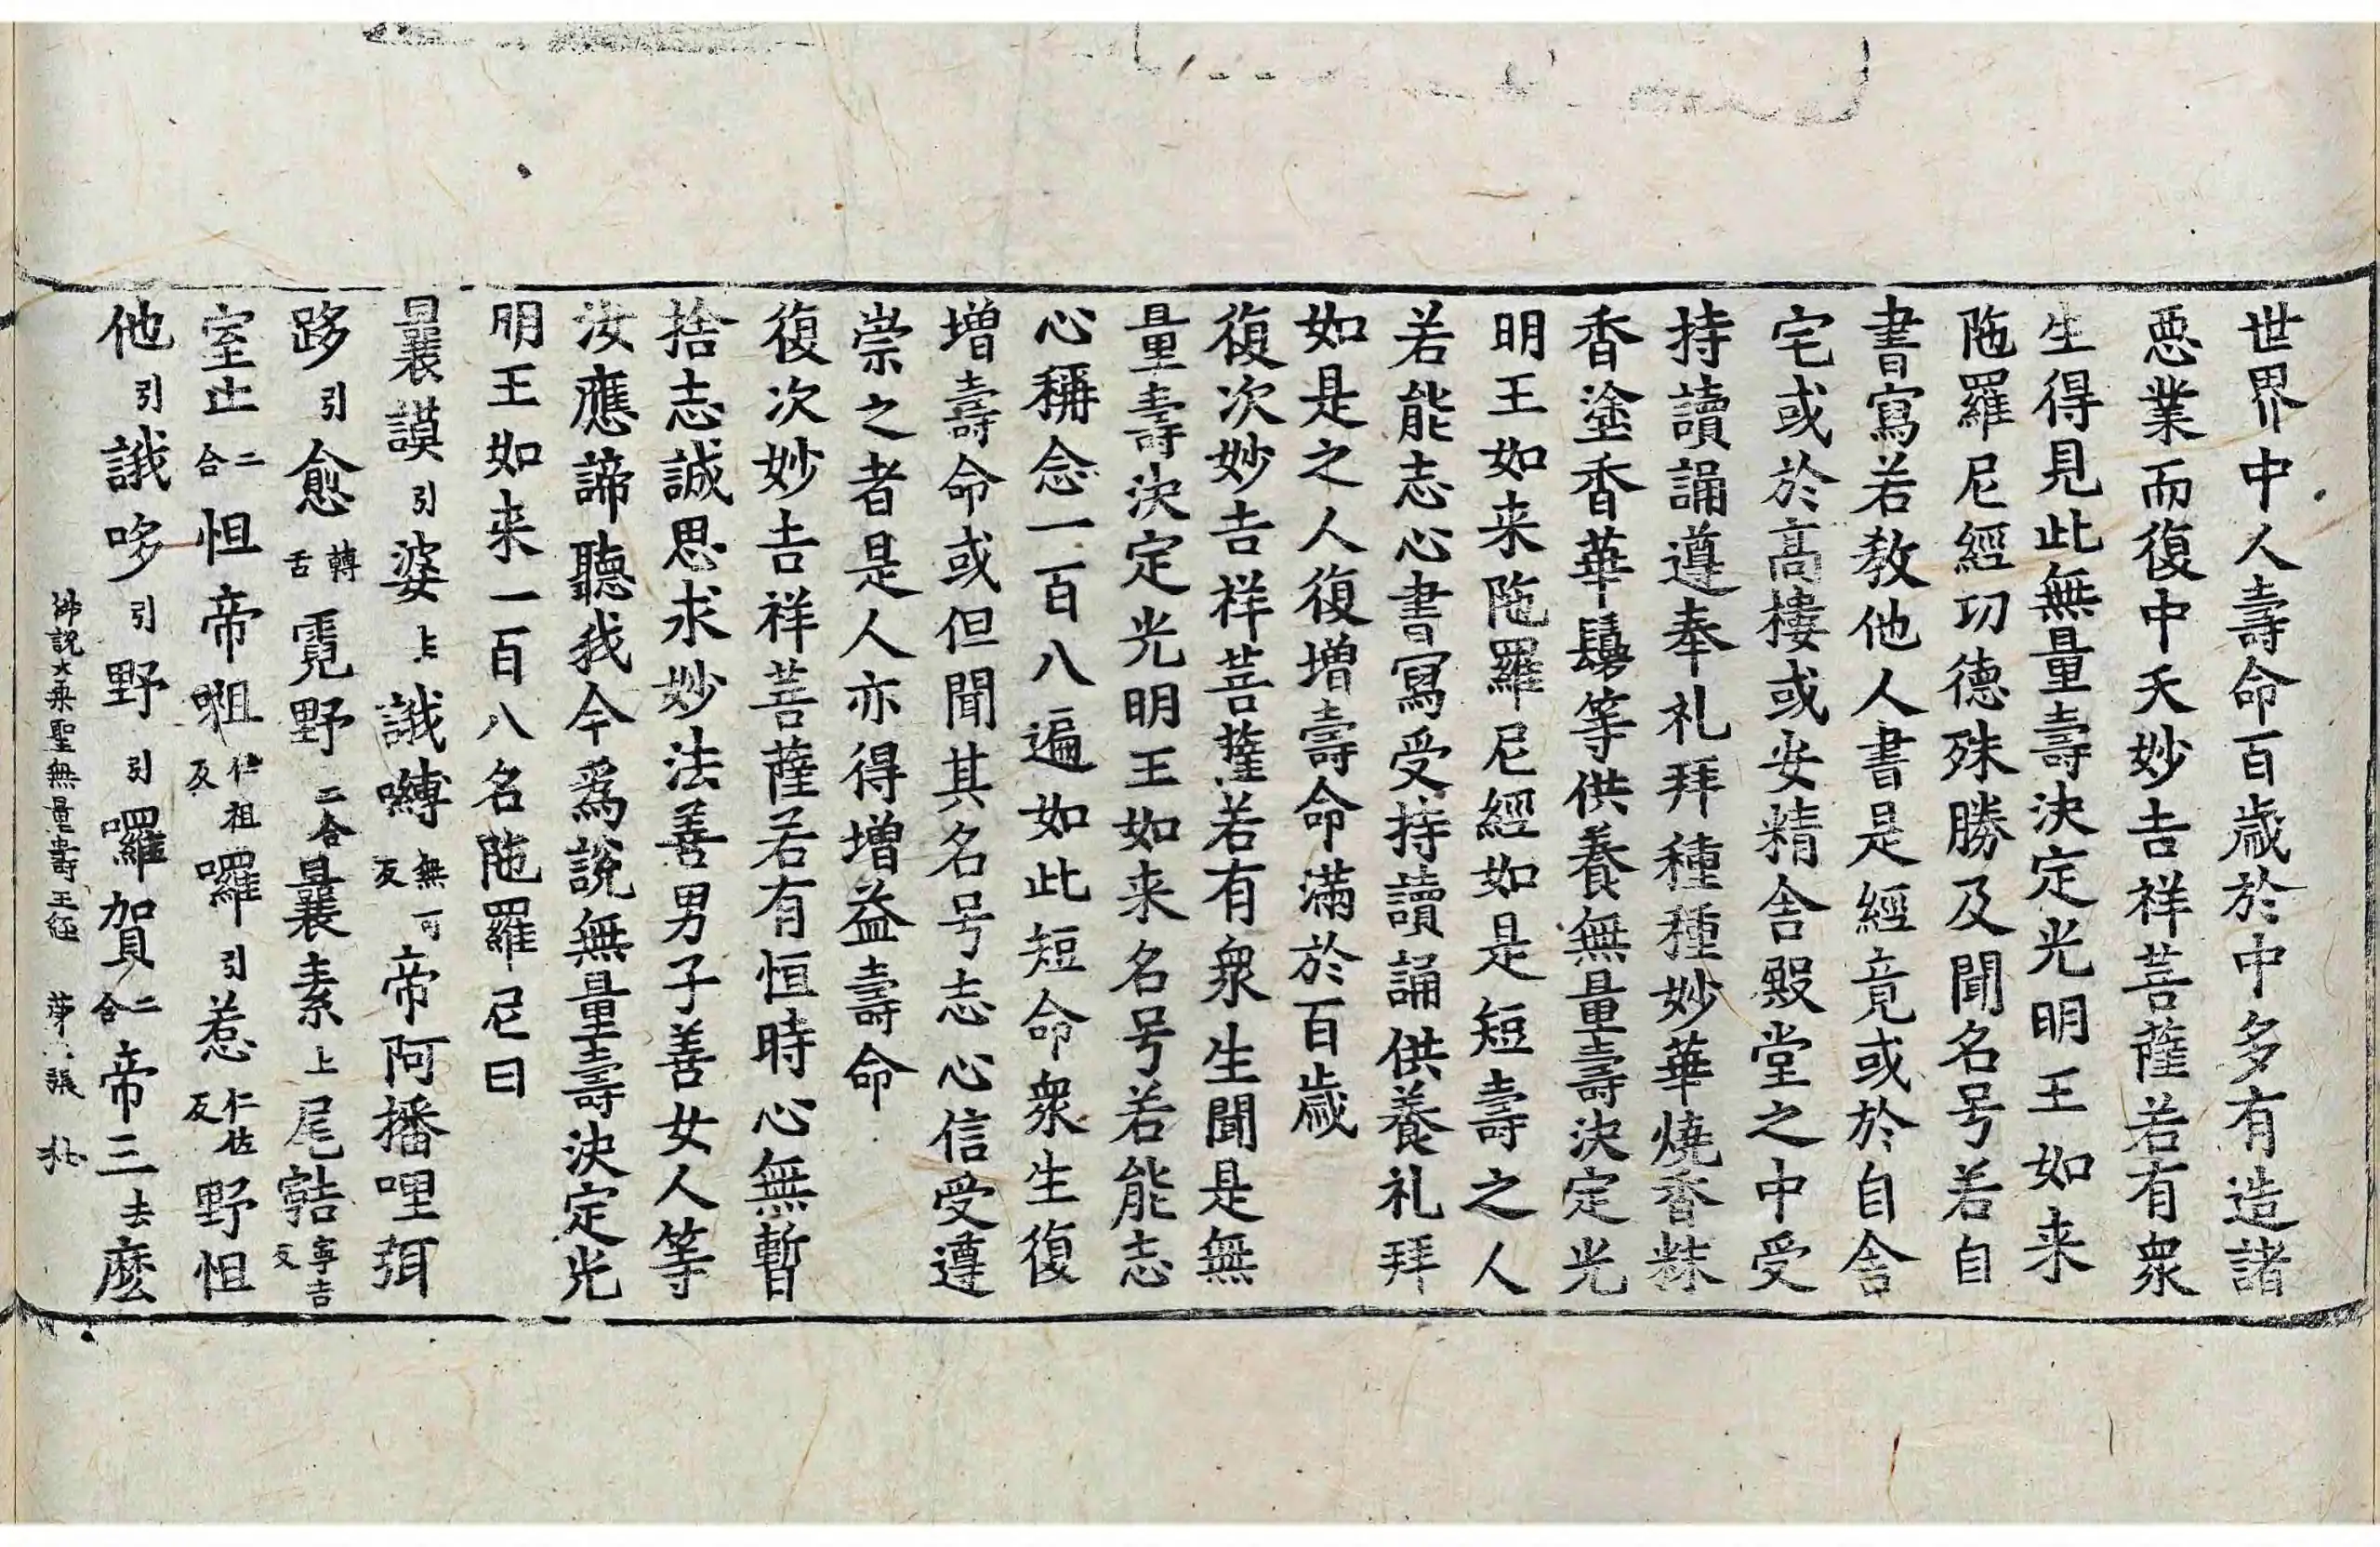 世界中人壽命百歲於中多有造諸
惡業而復中夭妙吉祥菩薩若有衆
生得見此無量壽決定光明王如来
陁羅尼經功德殊勝及聞名号若自
書寫若教他人書是經竟或於自舎
宅或於髙樓或安精舎殿堂之中受
持讀誦遵奉礼拜種種妙華燒香粖
香塗香華鬘等供養無量壽決定光
明王如来陁羅尼經如是短壽之人
若能志心書寫受持讀誦供養礼拜
如是之人復增壽命滿於百歲
復次妙吉祥菩薩若有衆生聞是無
量壽決定光明王如来名号若能志
心稱念一百八遍如此短命衆生復
增壽命或但聞其名号志心信受遵
崇之者是人亦得增益壽命
復次妙吉祥菩薩若有恒時心無暫
捨志誠思求妙法善男子善女人等
汝應諦聽我今爲說無量壽決定光
明王如来一百八名陁羅尼曰
曩謨引婆上誐嚩無可反帝阿播哩弭
跢引愈轉舌霓野二合曩素上尾𩐁寧吉反
室止二合怛帝𭉨仁祖反囉引惹仁佐反野怛
他引誐哆引野引囉賀二合帝三去麽
佛說大乗聖無量壽王經 苐 張